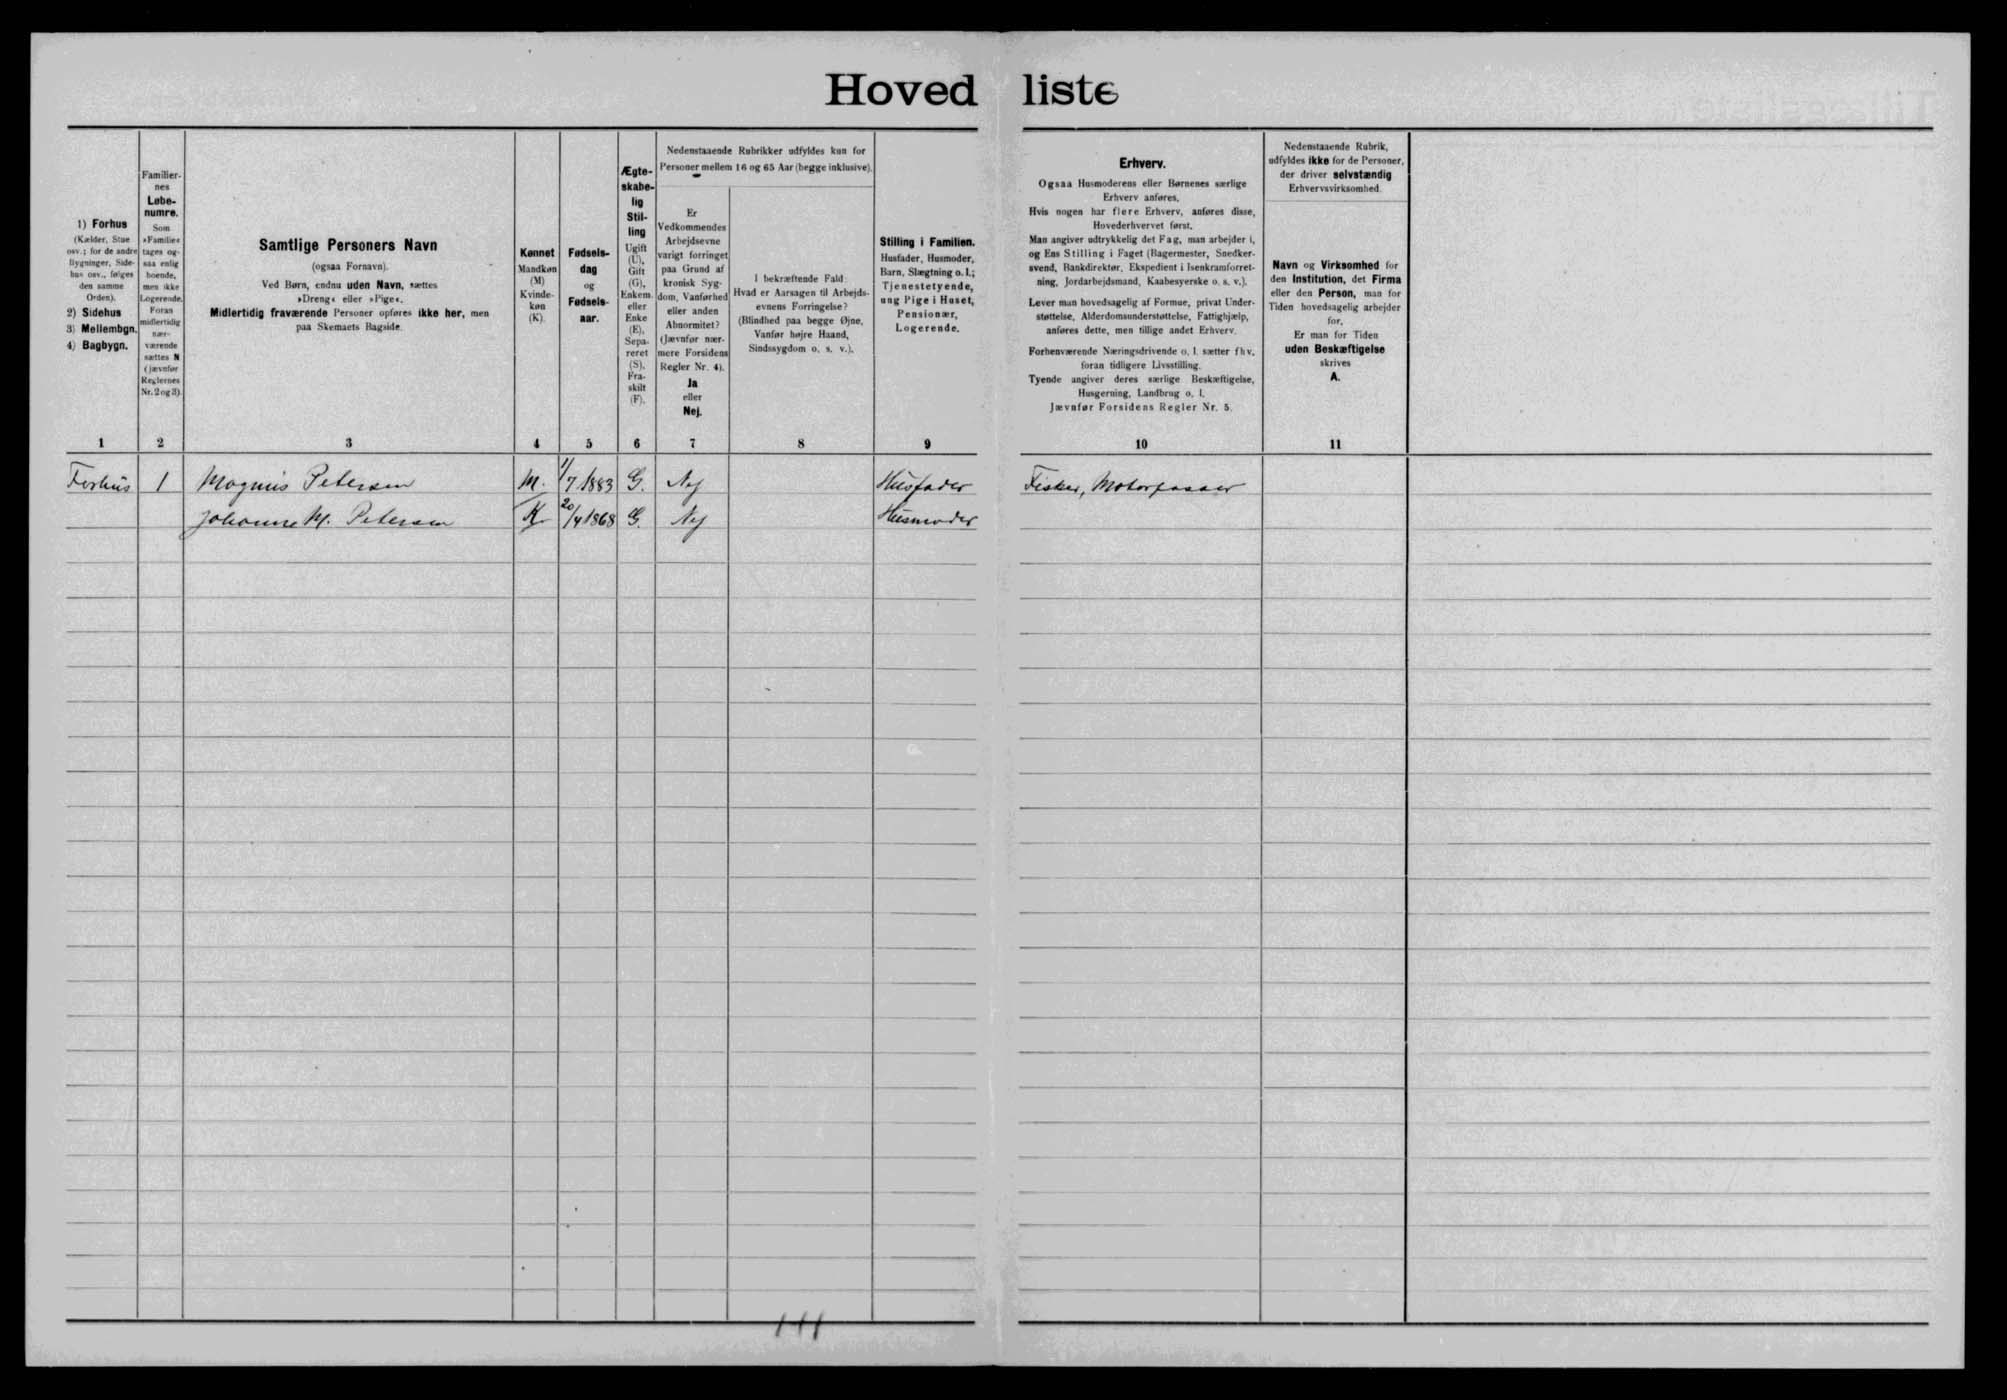 Hovedliste
1) Forhus
(Kælder, Stue
osv.; for de andre
Bygninger, Side-
hus osv., følges
den samme
Orden).
2) Sidehus
3) Mellembgn.
4) Bagbygn.
Familier-
nes
Løbe-
numre.
Som
»Familie«
tages og-
saa enlig
boende,
men ikke
Logerende.
Foran
midlertidig
nær-
værende
sættes N
(jævnfør
Reglernes
Nr. 2 og 3).
Samtlige Personers Navn
(ogsaa Fornavn).
Ved Børn, endnu uden Navn, sættes
»Dreng« eller »Pige«.
Midlertidig fraværende Personer opføres ikke her, men
paa Skemaets Bagside.
Kønnet
Mandkøn
(M)
Kvinde-
køn
(K).
Fødsels-
dag
og
Fødsels-
aar.
Ægte-
skabe-
lig
Stil-
ling
Ugift
(U),
Gift
(G),
Enkem.
eller
Enke
(E),
Sepa-
reret
(S),
Fra-
skilt
(F).
Nedenstaaende Rubrikker udfyldes kun for
Personer mellem 16 og 65 Aar (begge inklusive).
Er
Vedkommendes
Arbejdsevne
varigt forringet
paa Grund af
kronisk Syg-
dom, Vanførhed
eller anden
Abnormitet?
(Jævnfør nær-
mere Forsidens
Regler Nr. 4).
Ja
eller
Nej.
I bekræftende Fald:
Hvad er Aarsagen til Arbejds-
evnens Forringelse?
(Blindhed paa begge Øjne,
Vanfør højre Haand,
Sindssygdom o. s. v.).
Stilling i Familien.
Husfader, Husmoder,
Barn, Slægtning o. l.;
Tjenestetyende,
ung Pige i Huset,
Pensionær,
Logerende.
Erhverv.
Ogsaa Husmoderens eller Børnenes særlige
Erhverv anføres.
Hvis nogen har flere Erhverv, anføres disse,
Hovederhvervet først.
Man angiver udtrykkelig det Fag, man arbejder i,
og Ens Stilling i Faget (Bagermester, Snedker-
svend, Bankdirektør, Ekspedient i Isenkramforret-
ning, Jordarbejdsmand, Kaabesyerske o. s. v.).
Lever man hovedsagelig af Formue, privat Under-
støttelse, Alderdomsunderstøttelse, Fattighjælp,
anføres dette, men tillige andet Erhverv.
Forhenværende Næringsdrivende o. l. sætter fhv.
foran tidligere Livsstilling.
Tyende angiver deres særlige Beskæftigelse,
Husgerning, Landbrug o. l.
Jævnfør Forsidens Regler Nr. 5.
Nedenstaaende Rubrik,
udfyldes ikke for de Personer,
der driver selvstændig
Erhvervsvirksomhed.
Navn og Virksomhed for
den Institution, det Firma
eller den Person, man for
Tiden hovedsagelig arbejder
for.
Er man for Tiden
uden Beskæftigelse
skrives
A.
1 2 3 4 5 6 7 8 9 10 11
Forhus 1 Magnus Petersen M. 1/7 1883 G. Nej Husfader Fisker, Motorpasser
Johanne M. Petersen K 20/4 1868 G. Nej Husmoder